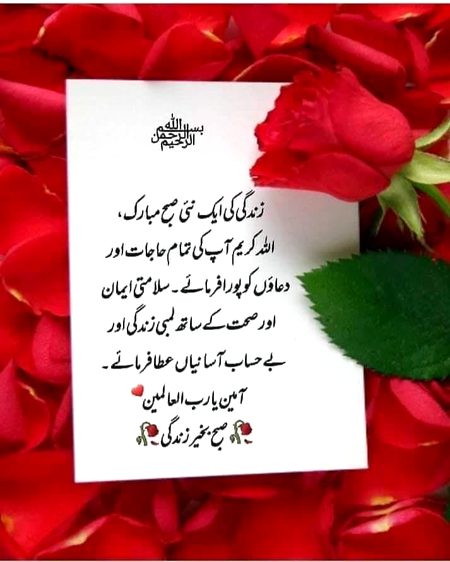 بسم الله الرحمن الرحيم
زندگی کی ایک نئی صبح مبارک،
اللہ کریم آپ کی تمام حاجات اور
دعاؤں کو پورا فرمائے۔ سلامتی ایمان
اور صحت کے ساتھ لمبی زندگی اور
بے حساب آسانیاں عطا فرمائے۔
آمین یارب العالمین❤️
🥀صبح بخیر زندگی🥀